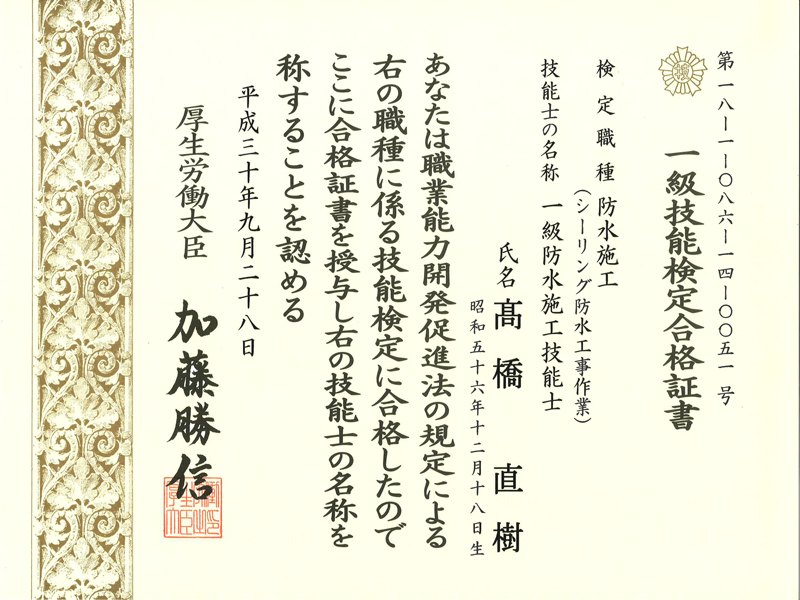 第一八ー一ー〇八六ー一四ー〇〇五一号
一級技能検定合格証書
検定職種 防水施工
(シーリング防水工事作業)
技能士の名称 一級防水施工技能士
氏名 髙橋 直樹
昭和五十六年十二月十八日生
あなたは職業能力開発促進法の規定による
右の職種に係る技能検定に合格したので
ここに合格証書を授与し右の技能士の名称を
称することを認める
平成三十年九月二十八日
厚生労働大臣 加藤勝信